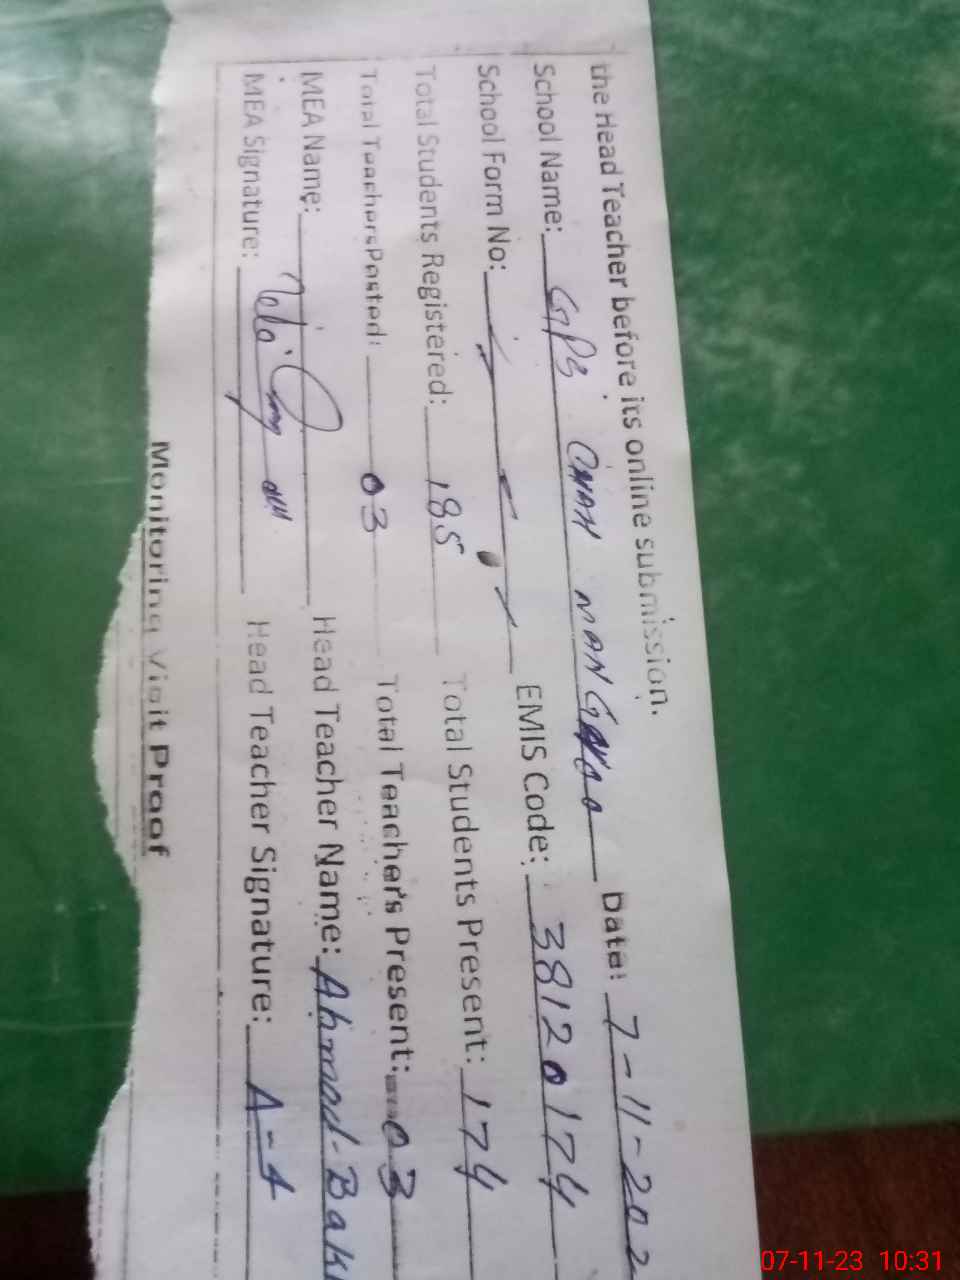 the Head Teacher before its online submission.
School Name: GPS CHAH Date: 7-11-202
School Form No: EMIS Code: 38120174
Total Students Registered: 185 Total Students Present: 174
Total Teachers Posted: 03 Total Teachers Present: 03
MEA Name: Head Teacher Name: Ahmad Bak
MEA Signature: Head Teacher Signature: A-A
Monitoring Visit Proof
07-11-23 10:31